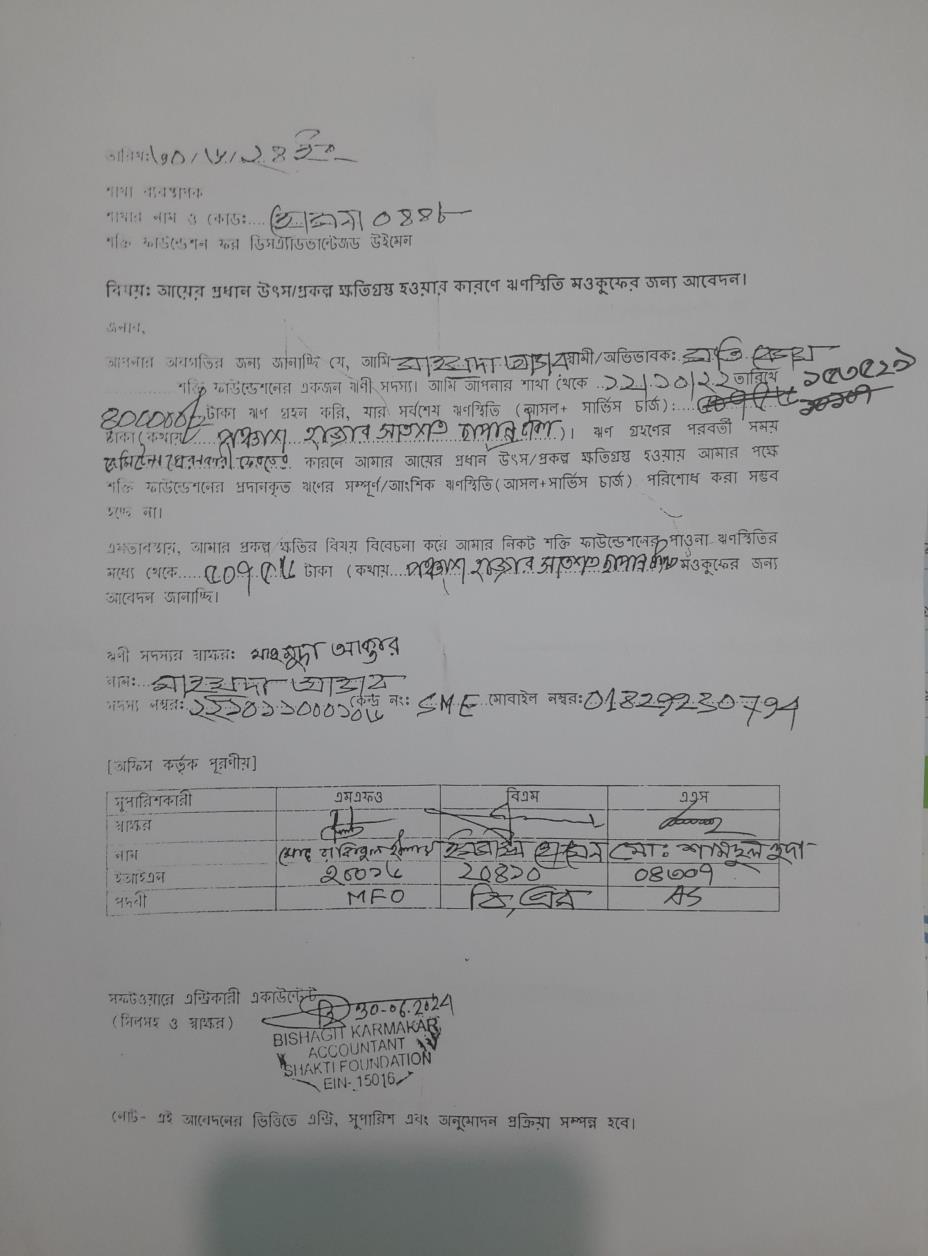 তারিখঃ ৩০/৬/২৪ ইং
শাখা ব্যবস্থাপক
শাখার নাম ও কোডঃ.... ০৪৪৮
শক্তি ফাউন্ডেশন ফর ডিসএ্যাডভান্টেজড উইমেন
বিষয়ঃ আয়ের প্রধান উৎস/প্রকল্প ক্ষতিগ্রস্ত হওয়ার কারণে ঋণস্থিতি মওকুফের জন্য আবেদন।
জনাব,
আপনার অবগতির জন্য জানাচ্ছি যে, আমি মাহমুদা আক্তার স্বামী/অভিভাবকঃ
শক্তি ফাউন্ডেশনের একজন ঋণী সদস্য। আমি আপনার শাখা থেকে ..১২/১০/২২ তারিখে
৪০০০০০/- টাকা ঋণ গ্রহন করি, যার সর্বশেষ ঋণস্থিতি (আসল+ সার্ভিস চার্জ):
টাকা (কথায় পঞ্চাশ হাজার সাতশত ছাপান্ন টাকা)। ঋণ গ্রহণের পরবর্তী সময়
কারনে আমার আয়ের প্রধান উৎস/প্রকল্প ক্ষতিগ্রস্ত হওয়ায় আমার পক্ষে
শক্তি ফাউন্ডেশনের প্রদানকৃত ঋণের সম্পূর্ণ/আংশিক ঋণস্থিতি(আসল+সার্ভিস চার্জ) পরিশোধ করা সম্ভব
হচ্ছে না।
এমতাবস্থায়, আমার প্রকল্প ক্ষতির বিষয় বিবেচনা করে আমার নিকট শক্তি ফাউন্ডেশনের পাওনা ঋণস্থিতির
মধ্যে থেকে.....৫০৭৫৬ টাকা (কথায়...পঞ্চাশ হাজার সাতশত ছাপান্ন টাকা মওকুফের জন্য
আবেদন জানাচ্ছি।
ঋণী সদস্যর স্বাক্ষরঃ মাহমুদা আক্তার
নামঃ... মাহমুদা আক্তার
সদস্য নম্বরঃ কেন্দ্র নংঃ SME ...মোবাইল নম্বরঃ 01829230794
[অফিস কর্তৃক পূরণীয়]
সুপারিশকারী এমএফও বিএম এএস
স্বাক্ষর
নাম মোঃ রাকিবুল ইসলাম মোঃ শামসুল হুদা
ইআইএন ২০৪১০ ০৪৩০৭
পদবী MFO বি, এম AS
সফটওয়ারে এন্ট্রিকারী একাউন্টেন্ট 30-06-2024
(সিলসহ ও স্বাক্ষর)
BISHAGIT KARMAKAR
ACCOUNTANT
SHAKTI FOUNDATION
EIN- 15016
নোট- এই আবেদনের ভিত্তিতে এন্ট্রি, সুপারিশ এবং অনুমোদন প্রক্রিয়া সম্পন্ন হবে।